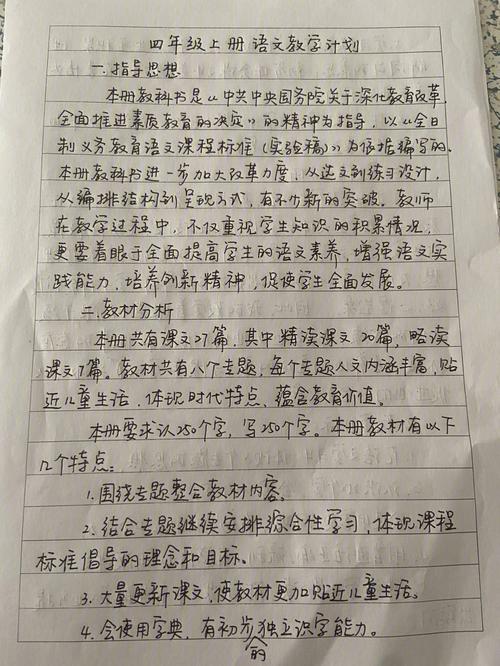 四年级上册语文教学计划
一.指导思想
本册教科书是以《中共中央国务院关于深化教育改革,
全面推进素质教育的决定》的精神为指导,以《全日
制义务教育语文课程标准(实验稿)》为依据编写的。
本册教科书进一步加大改革力度,从选文到练习设计,
从编排结构到呈现方式,有不少新的突破。教师
在教学过程中,不仅重视学生知识的积累情况,
更要着眼于全面提高学生的语文素养,增强语文实
践能力,培养创新精神,促使学生全面发展。
二.教材分析
本册共有课文27篇,其中精读课文20篇,略读
课文7篇。教材共有八个专题,每个专题人文内涵丰富,贴
近儿童生活,体现时代特点,蕴含教育价值。
本册要求认250个字,写250个字。本册教材有以下
几个特点:
1.围绕专题整合教材内容。
2.结合专题继续安排综合性学习,体现课程
标准倡导的理念和目标。
3.大量更新课文,使教材更加贴近儿童生活。
4.会使用字典,有初步的独立识字能力。